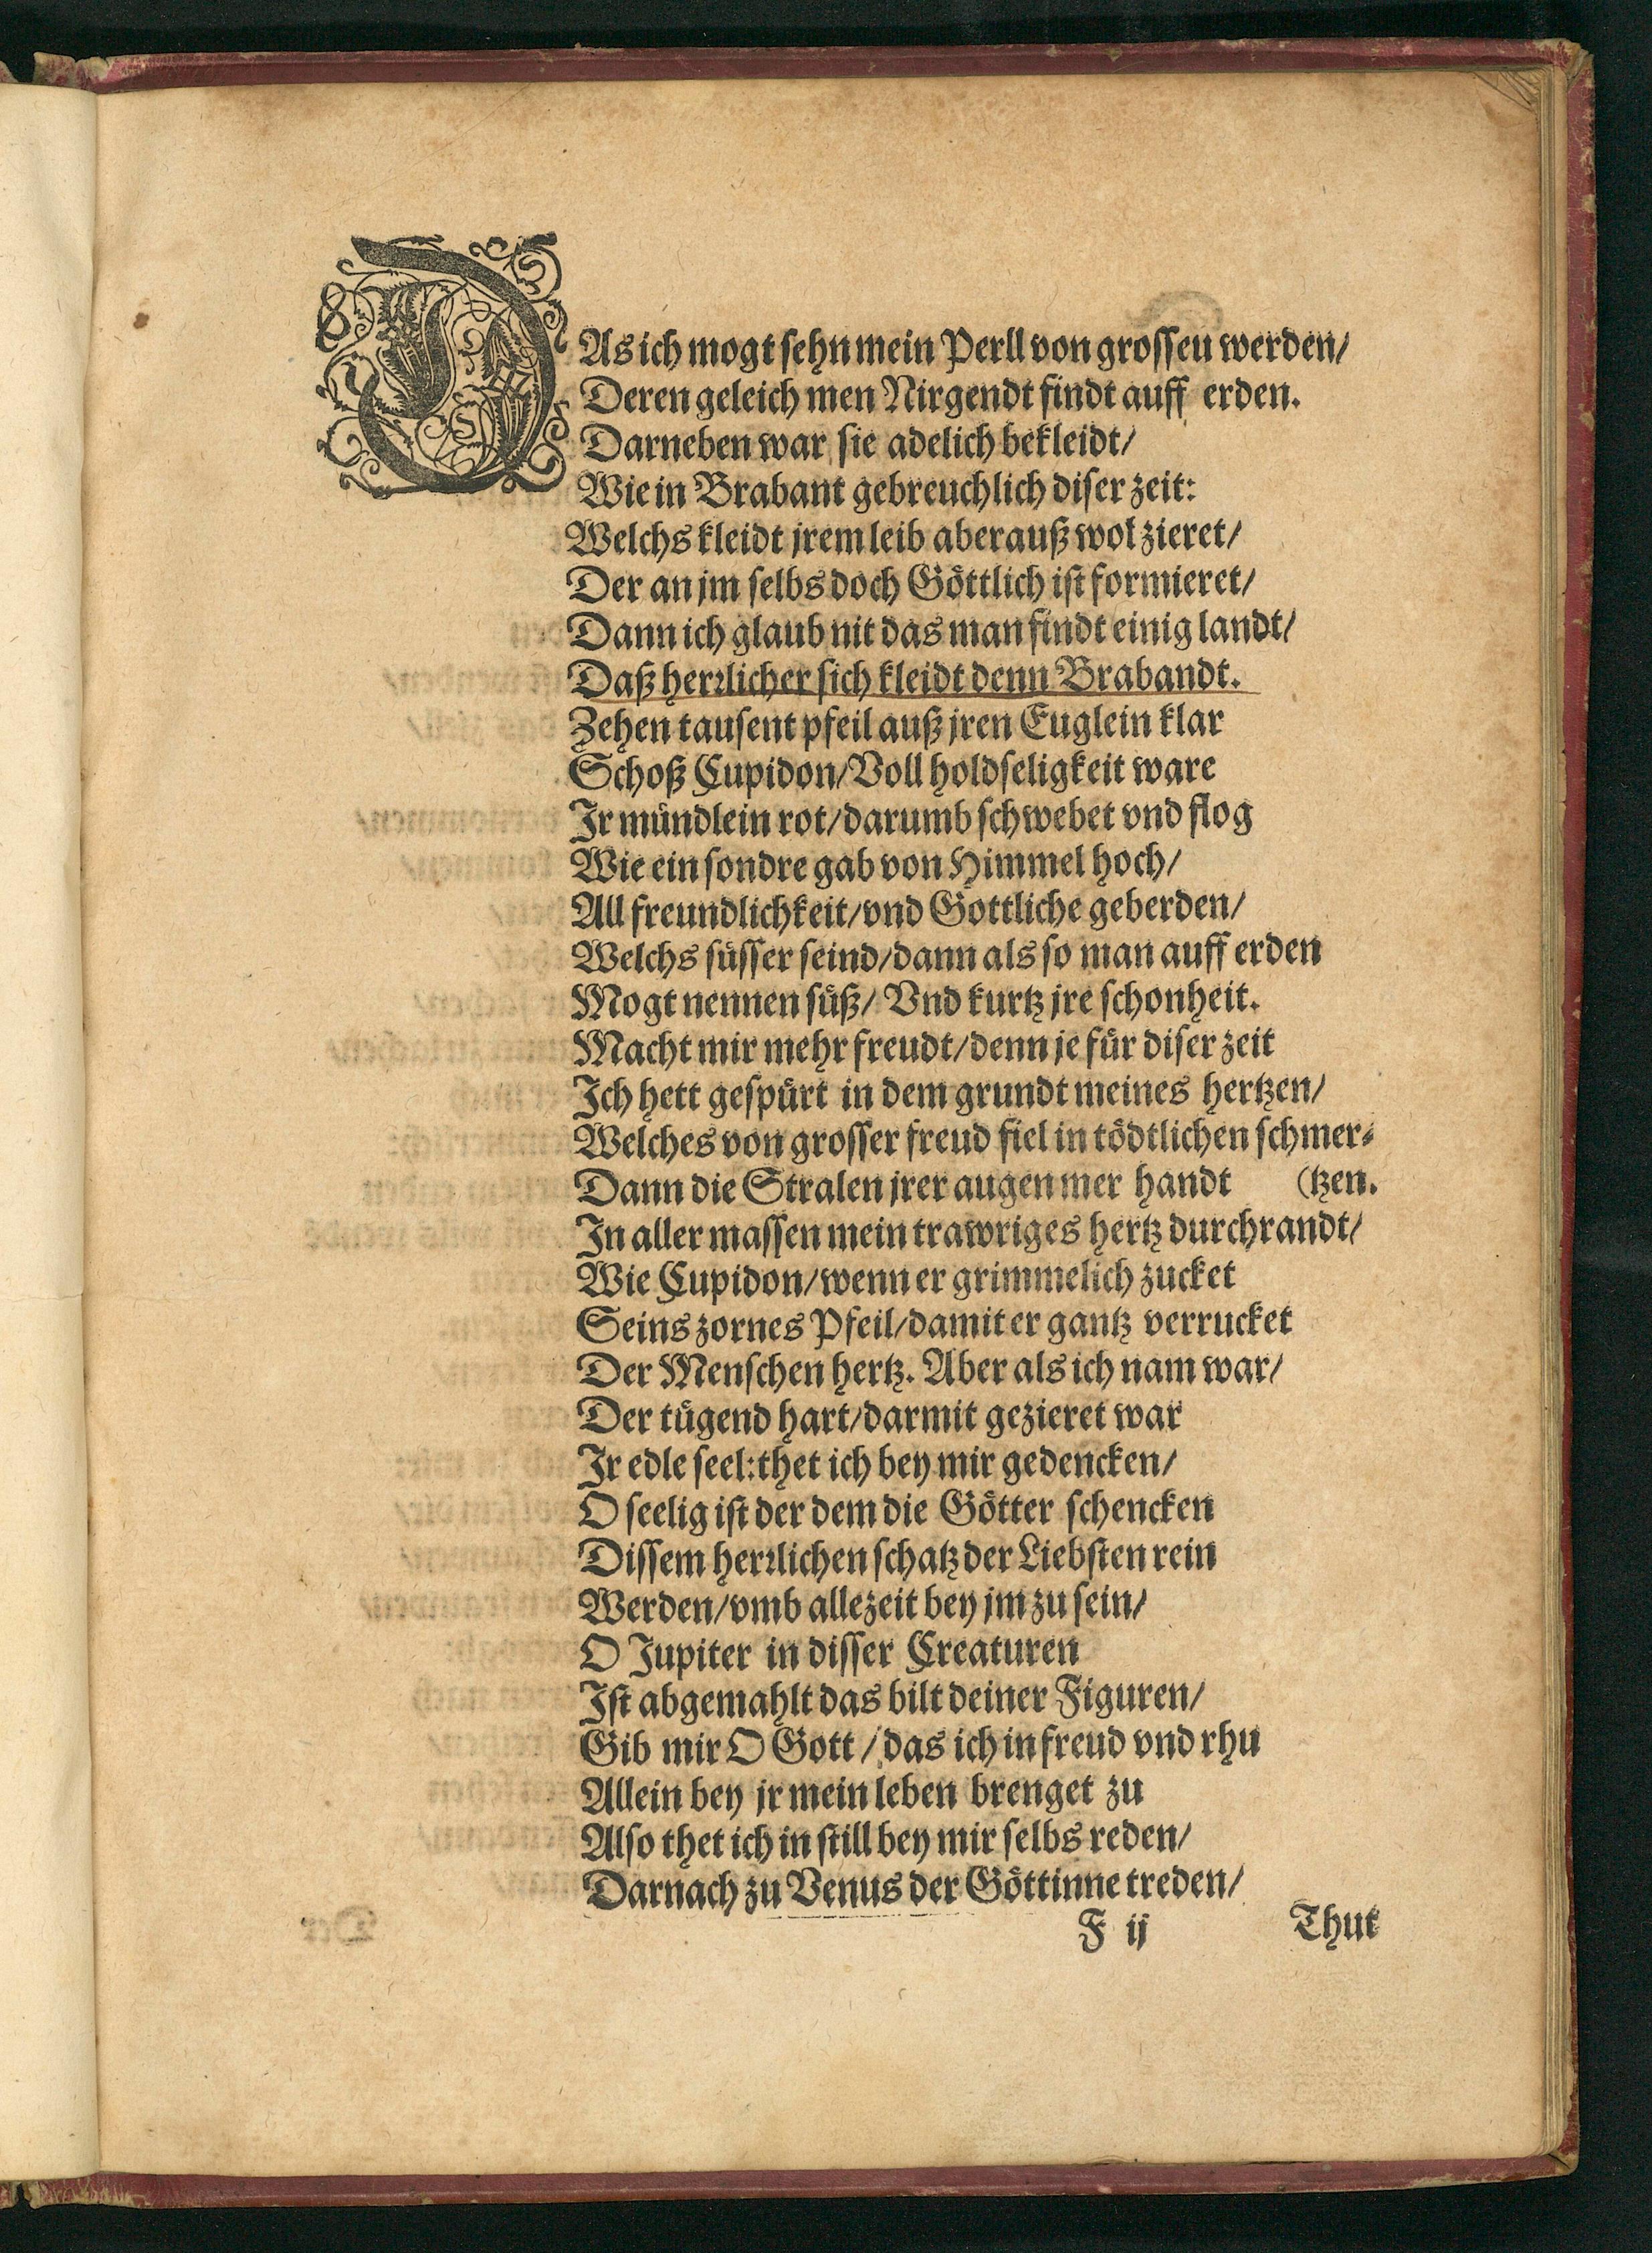 DAs ich mogt sehn mein Perll von grosseu werden/
Deren geleich men Nirgendt findt auff erden.
Darneben war sie adelich bekleidt/
Wie in Brabant gebreuchlich diser zeit:
Welchs kleidt jrem leib aberauß wol zieret/
Der an jm selbs doch Göttlich ist formieret/
Dann ich glaub nit das man findt einig landt/
Daß herrlicher sich kleidt denn Brabandt.
Zehen tausent pfeil auß jren Euglein klar
Schoß Cupidon/Voll holdseligkeit ware
Ir mündlein rot/darumb schwebet vnd flog
Wie ein sondre gab von Himmel hoch/
All freundlichkeit/vnd Gottliche geberden/
Welchs süsser seind/dann als so man auff erden
Mogt nennen süß/ Vnd kurtz jre schonheit.
Macht mir mehr freudt/denn je für diser zeit
Ich hett gespürt in dem grundt meines hertzen/
Welches von grosser freud fiel in tödtlichen schmer-
Dann die Stralen jrer augen mer handt (tzen.
In aller massen mein trawriges hertz durchrandt/
Wie Cupidon/wenn er grimmelich zucket
Seins zornes Pfeil/damit er gantz verrucket
Der Menschen hertz. Aber als ich nam war/
Der tügend hart/darmit gezieret war
Ir edle seel:thet ich bey mir gedencken/
O seelig ist der dem die Götter schencken
Dissem herrlichen schatz der Liebsten rein
Werden/vmb allezeit bey jm zu sein/
O Jupiter in disser Creaturen
Ist abgemahlt das bilt deiner Figuren/
Gib mir O Gott / das ich in freud vnd rhu
Allein bey jr mein leben brenget zu
Also thet ich in still bey mir selbs reden/
Darnach zu Venus der Göttinne treden/
F ij Thut